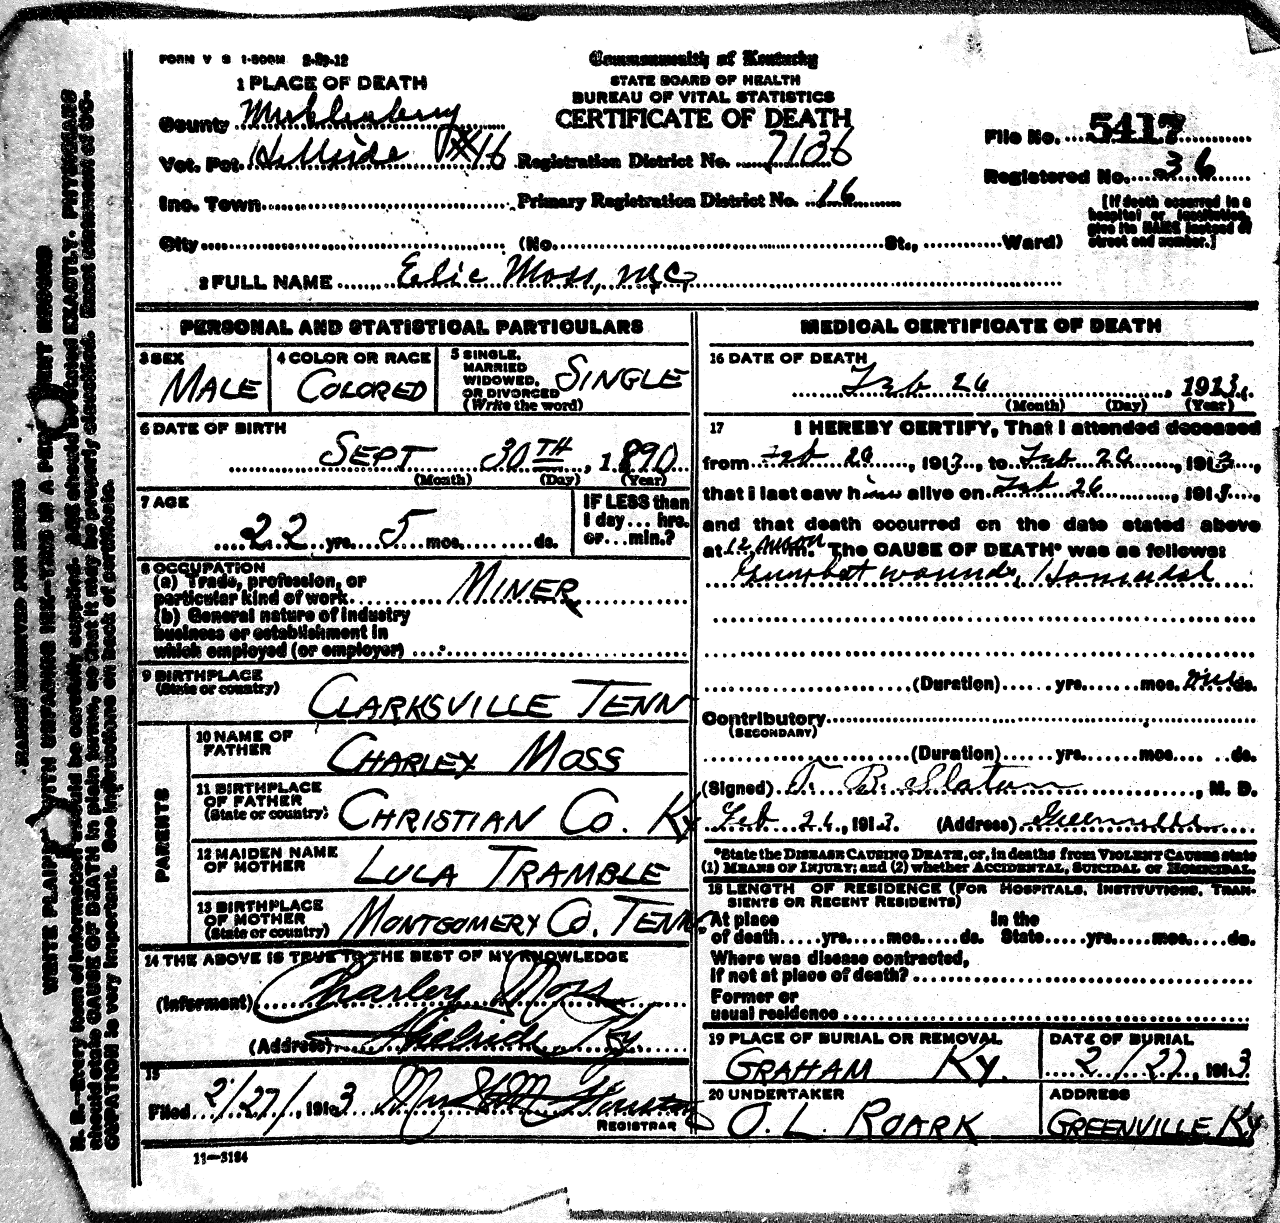 FORM V S 1-500M 2-29-12
Commonwealth of Kentucky
STATE BOARD OF HEALTH
BUREAU OF VITAL STATISTICS
CERTIFICATE OF DEATH
1 PLACE OF DEATH
County Muhlenberg
Vot. Pct. Hillside #16 Registration District No. 7136
File No. 5417
Registered No. 36
Inc. Town Primary Registration District No. 16
[If death occurred in a hospital or institution, give its NAME instead of street and number.]
City (No. St., Ward)
2 FULL NAME Elic Moss,
PERSONAL AND STATISTICAL PARTICULARS
3 SEX MALE
4 COLOR OR RACE COLORED
5 SINGLE, MARRIED WIDOWED, OR DIVORCED (Write the word) SINGLE
6 DATE OF BIRTH
SEPT 30TH, 1890
(Month) (Day) (Year)
7 AGE
22 yrs. 5 mos. ds.
IF LESS than
1 day... hrs.
or... min.?
8 OCCUPATION
(a) Trade, profession, or
particular kind of work MINER
(b) General nature of industry
business or establishment in
which employed (or employer)
9 BIRTHPLACE
(State or country)
CLARKSVILLE TENN
PARENTS
10 NAME OF FATHER CHARLEY MOSS
11 BIRTHPLACE OF FATHER (State or country) CHRISTIAN CO. KY
12 MAIDEN NAME OF MOTHER LULA TRAMBLE
13 BIRTHPLACE OF MOTHER (State or country) MONTGOMERY CO. TENN.
14 THE ABOVE IS TRUE TO THE BEST OF MY KNOWLEDGE
(Informant) Charley Moss
(Address) Hillside Ky
15
Filed 2/27/, 1913
REGISTRAR
11—3184
MEDICAL CERTIFICATE OF DEATH
16 DATE OF DEATH
Feb 26, 1913.
(Month) (Day) (Year)
17 I HEREBY CERTIFY, That I attended deceased
from Feb 26, 1913, to Feb 26, 1913,
that I last saw him alive on Feb 26, 1913,
and that death occurred on the date stated above
at 12 noon m. The CAUSE OF DEATH* was as follows:
Gunshot wounds, Homicidal
(Duration) yrs. mos. one ds.
Contributory
(SECONDARY)
(Duration) yrs. mos. ds.
(Signed) T. B. Slaton, M. D.
Feb 26, 1913. (Address) Greenville
*State the DISEASE CAUSING DEATH, or, in deaths from VIOLENT CAUSES state
(1) MEANS OF INJURY; and (2) whether ACCIDENTAL, SUICIDAL or HOMICIDAL.
18 LENGTH OF RESIDENCE (FOR HOSPITALS, INSTITUTIONS, TRAN-
SIENTS OR RECENT RESIDENTS)
At place In the
of death yrs. mos. ds. State yrs. mos. ds.
Where was disease contracted,
if not at place of death?
Former or
usual residence
19 PLACE OF BURIAL OR REMOVAL
GRAHAM KY.
DATE OF BURIAL
2/27, 1913
20 UNDERTAKER
O. L. ROARK
ADDRESS
GREENVILLE, KY
MARGIN RESERVED FOR BINDING
WRITE PLAINLY WITH UNFADING INK—THIS IS A PERMANENT RECORD
N. B.—Every item of information should be carefully supplied. AGE should be stated EXACTLY. PHYSICIANS
should state CAUSE OF DEATH in plain terms, so that it may be properly classified. Exact statement of OC-
CUPATION is very important. See instructions on back of certificate.